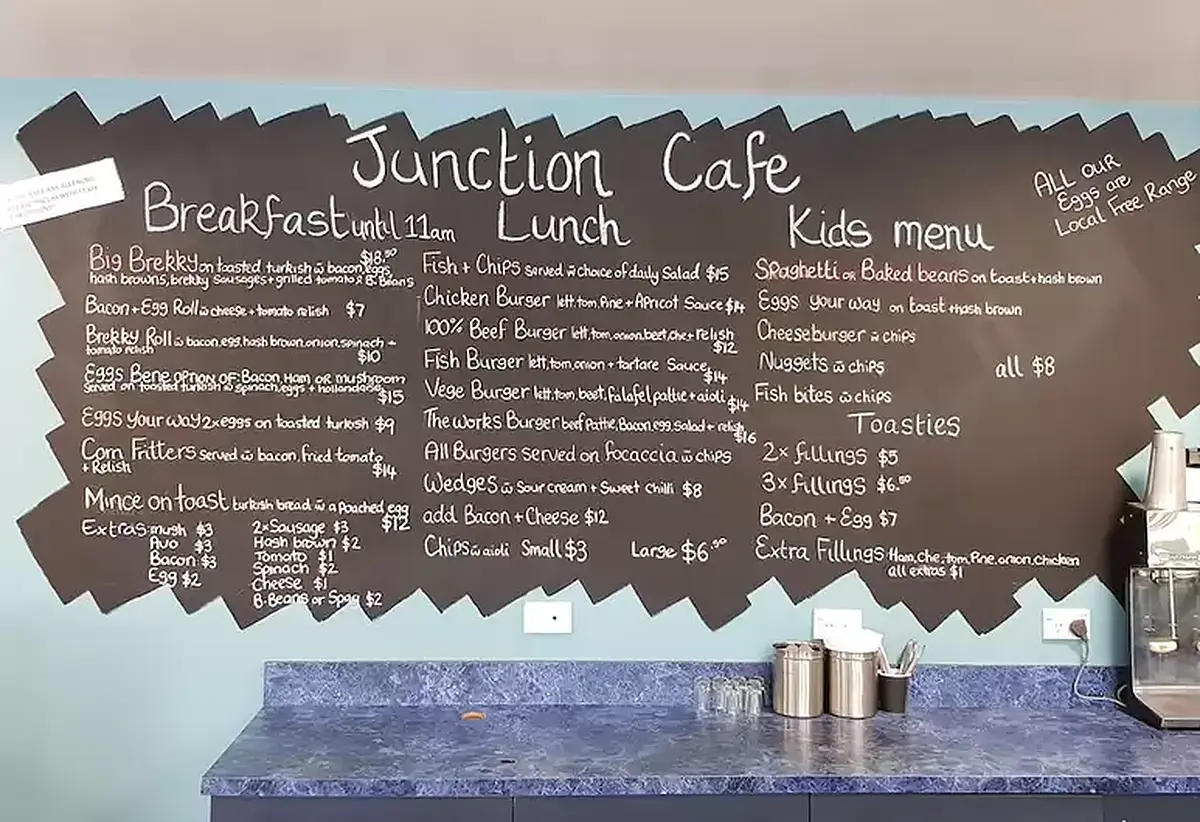 Junction Cafe
ALL OUR
Eggs are
Local Free Range
Breakfast until 11am
Big Brekky on toasted turkish w̄ bacon, eggs, $18.50
hash browns, brekky sausages + grilled tomato & B.Beans
Bacon + Egg Roll w̄ cheese + tomato relish $7
Brekky Roll w̄ bacon, egg, hash brown, onion, spinach +
tomato relish $10
Eggs Bene OPTION OF: Bacon, Ham, OR mushroom
Served on toasted turkish w̄ spinach, eggs + hollandaise $15
Eggs Your way 2x eggs on toasted turkish $9
Corn Fritters served w̄ bacon, fried tomato
+ Relish $14
Mince on toast turkish bread w̄ a poached egg
$12
Extras: mush $3
Avo $3
Bacon $3
Egg $2
2x Sausage $3
Hash brown $2
Tomato $1
Spinach $2
Cheese $1
B.Beans or Spag $2
Lunch
Fish + Chips served w̄ choice of daily Salad $15
Chicken Burger lett, tom, Pine + Apricot Sauce $14
100% Beef Burger lett, tom, onion, beet, che + relish
$12
Fish Burger lett, tom, onion + tartare Sauce
$14
Vege Burger lett, tom, beet, falafel pattie + aioli $14
The works Burger beef Pattie, Bacon, egg, Salad + relish
$16
All Burgers served on focaccia w̄ chips
Wedges w̄ Sour cream + Sweet Chilli $8
add Bacon + Cheese $12
Chips w̄ aioli Small $3 Large $6.50
Kids menu
Spaghetti OR Baked beans on toast + hash brown
Eggs your way on toast + hash brown
Cheeseburger w̄ chips
Nuggets w̄ chips all $8
Fish bites w̄ chips
Toasties
2x fillings $5
3x fillings $6.50
Bacon + Egg $7
Extra Fillings Ham, Che, tom, Pine, onion, Chicken
all extras $1